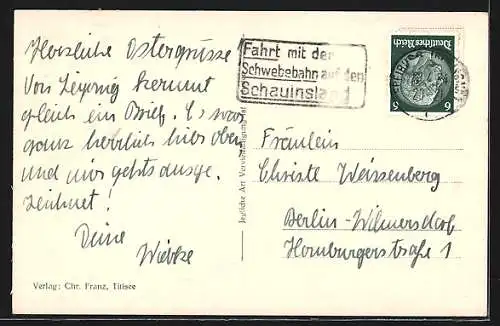 Herzliche Ostergrüsse
Von Leipzig kommt
gleich ein Brief. Es war
ganz herrlich hier oben
und mir gehts ausge-
zeichnet!
Deine
Wiebke
Verlag: Chr. Franz, Titisee
Jegliche Art Vervielfältigung
Fahrt mit der
Schwebebahn auf den
Schauinsland
Deutsches Reich
6 6
Fräulein
Christe Weissenberg
Berlin-Wilmersdorf
Homburgerstraße 1